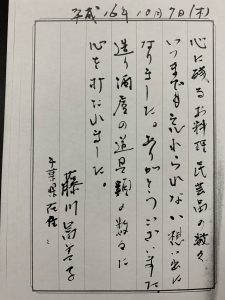 平成16年10月7日(木)
心に残るお料理 民芸品の数々
いつまでも忘れられない想い出に
なりました。ありがとうございました
造り酒屋の道具類の数々に
心を打たれました。
千葉県在住
藤川